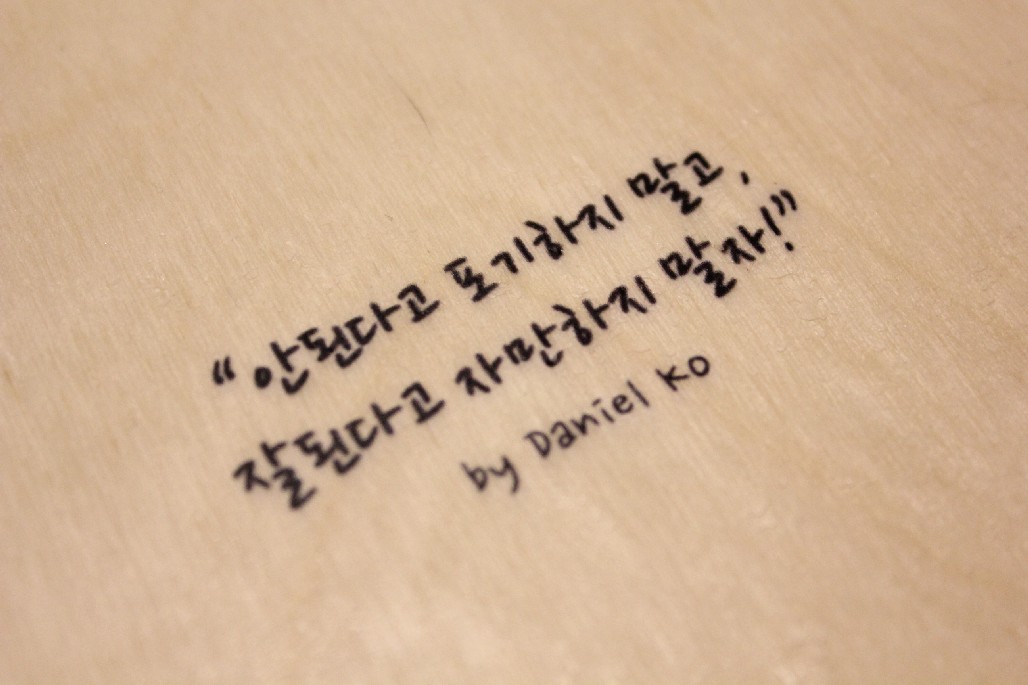 “안된다고 포기하지 말고,
잘된다고 자만하지 말자!”
by Daniel Ko